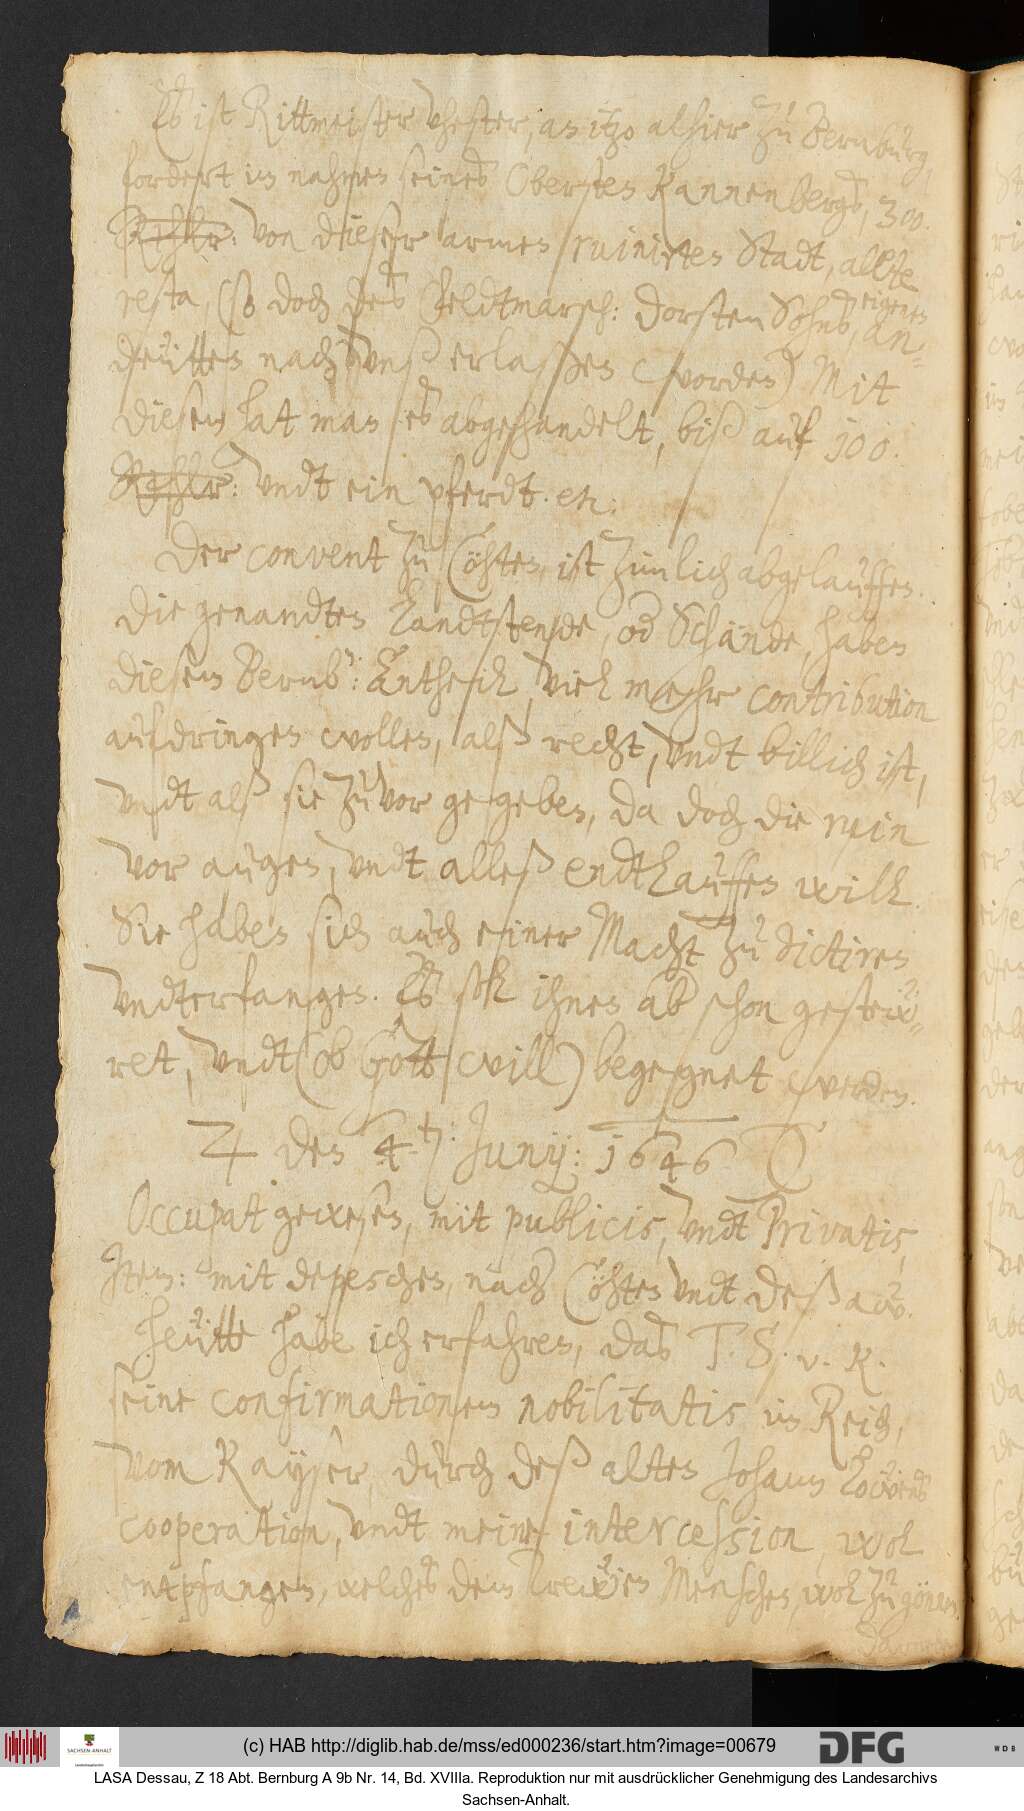 Es ist Rittmeister Vhester, an itzo alhier zu Bernburg,
fordert im nahmen seines Obersten Kannenbergs, 300
Rthlr: von dieser armen ruinirten Stadt, allte
resta, (so doch des Feldtmarsch: Dorsten Sohns, eigenen an¬
deütten nach vnß erlaßen worden) Mit
diesem hat man es abgehandelt, biß auf 100
Rthlr: vndt ein pferdt. etc:
Der convent zu Cöhten, ist zimlich abgelauffen.
Die genandten Landtstende, od Schände, haben
diesem Bernb: Antheil, viel mehr contribution
aufdringen wollen, alß recht, vndt billich ist,
vndt alß sie zu vor gegeben, da doch die ruin
vor augen, vndt alleß endtlauffen will.
Sie haben sich auch einer Macht zu dictiren
vndterfangen. Es soll ihnen ab schon gesteüw¬
ret, vndt (ob Gott will) begegnet werden.
♃ den 4.ten: Junij: 1646 ☾
Occupat gewesen, mit publicis, vndt Privatis,
Item: mit depeschen, nach Cöhten vndt Deßaw.
Heütte habe ich erfahren, das T. S. v. K.
seine confirmationem nobilitatis im Reich,
vom Kayser, durch deß alten Johann Löwens
cooperation, vndt meine intercession, wol
entpfangen, welches dem Trewen Menschen, wol zu gönnen.
(c) HAB http://diglib.hab.de/mss/ed000236/start.htm?image=00679
DFG
WDB
SACHSEN-ANHALT
LASA Dessau, Z 18 Abt. Bernburg A 9b Nr. 14, Bd. XVIIIa. Reproduktion nur mit ausdrücklicher Genehmigung des Landesarchivs
Sachsen-Anhalt.